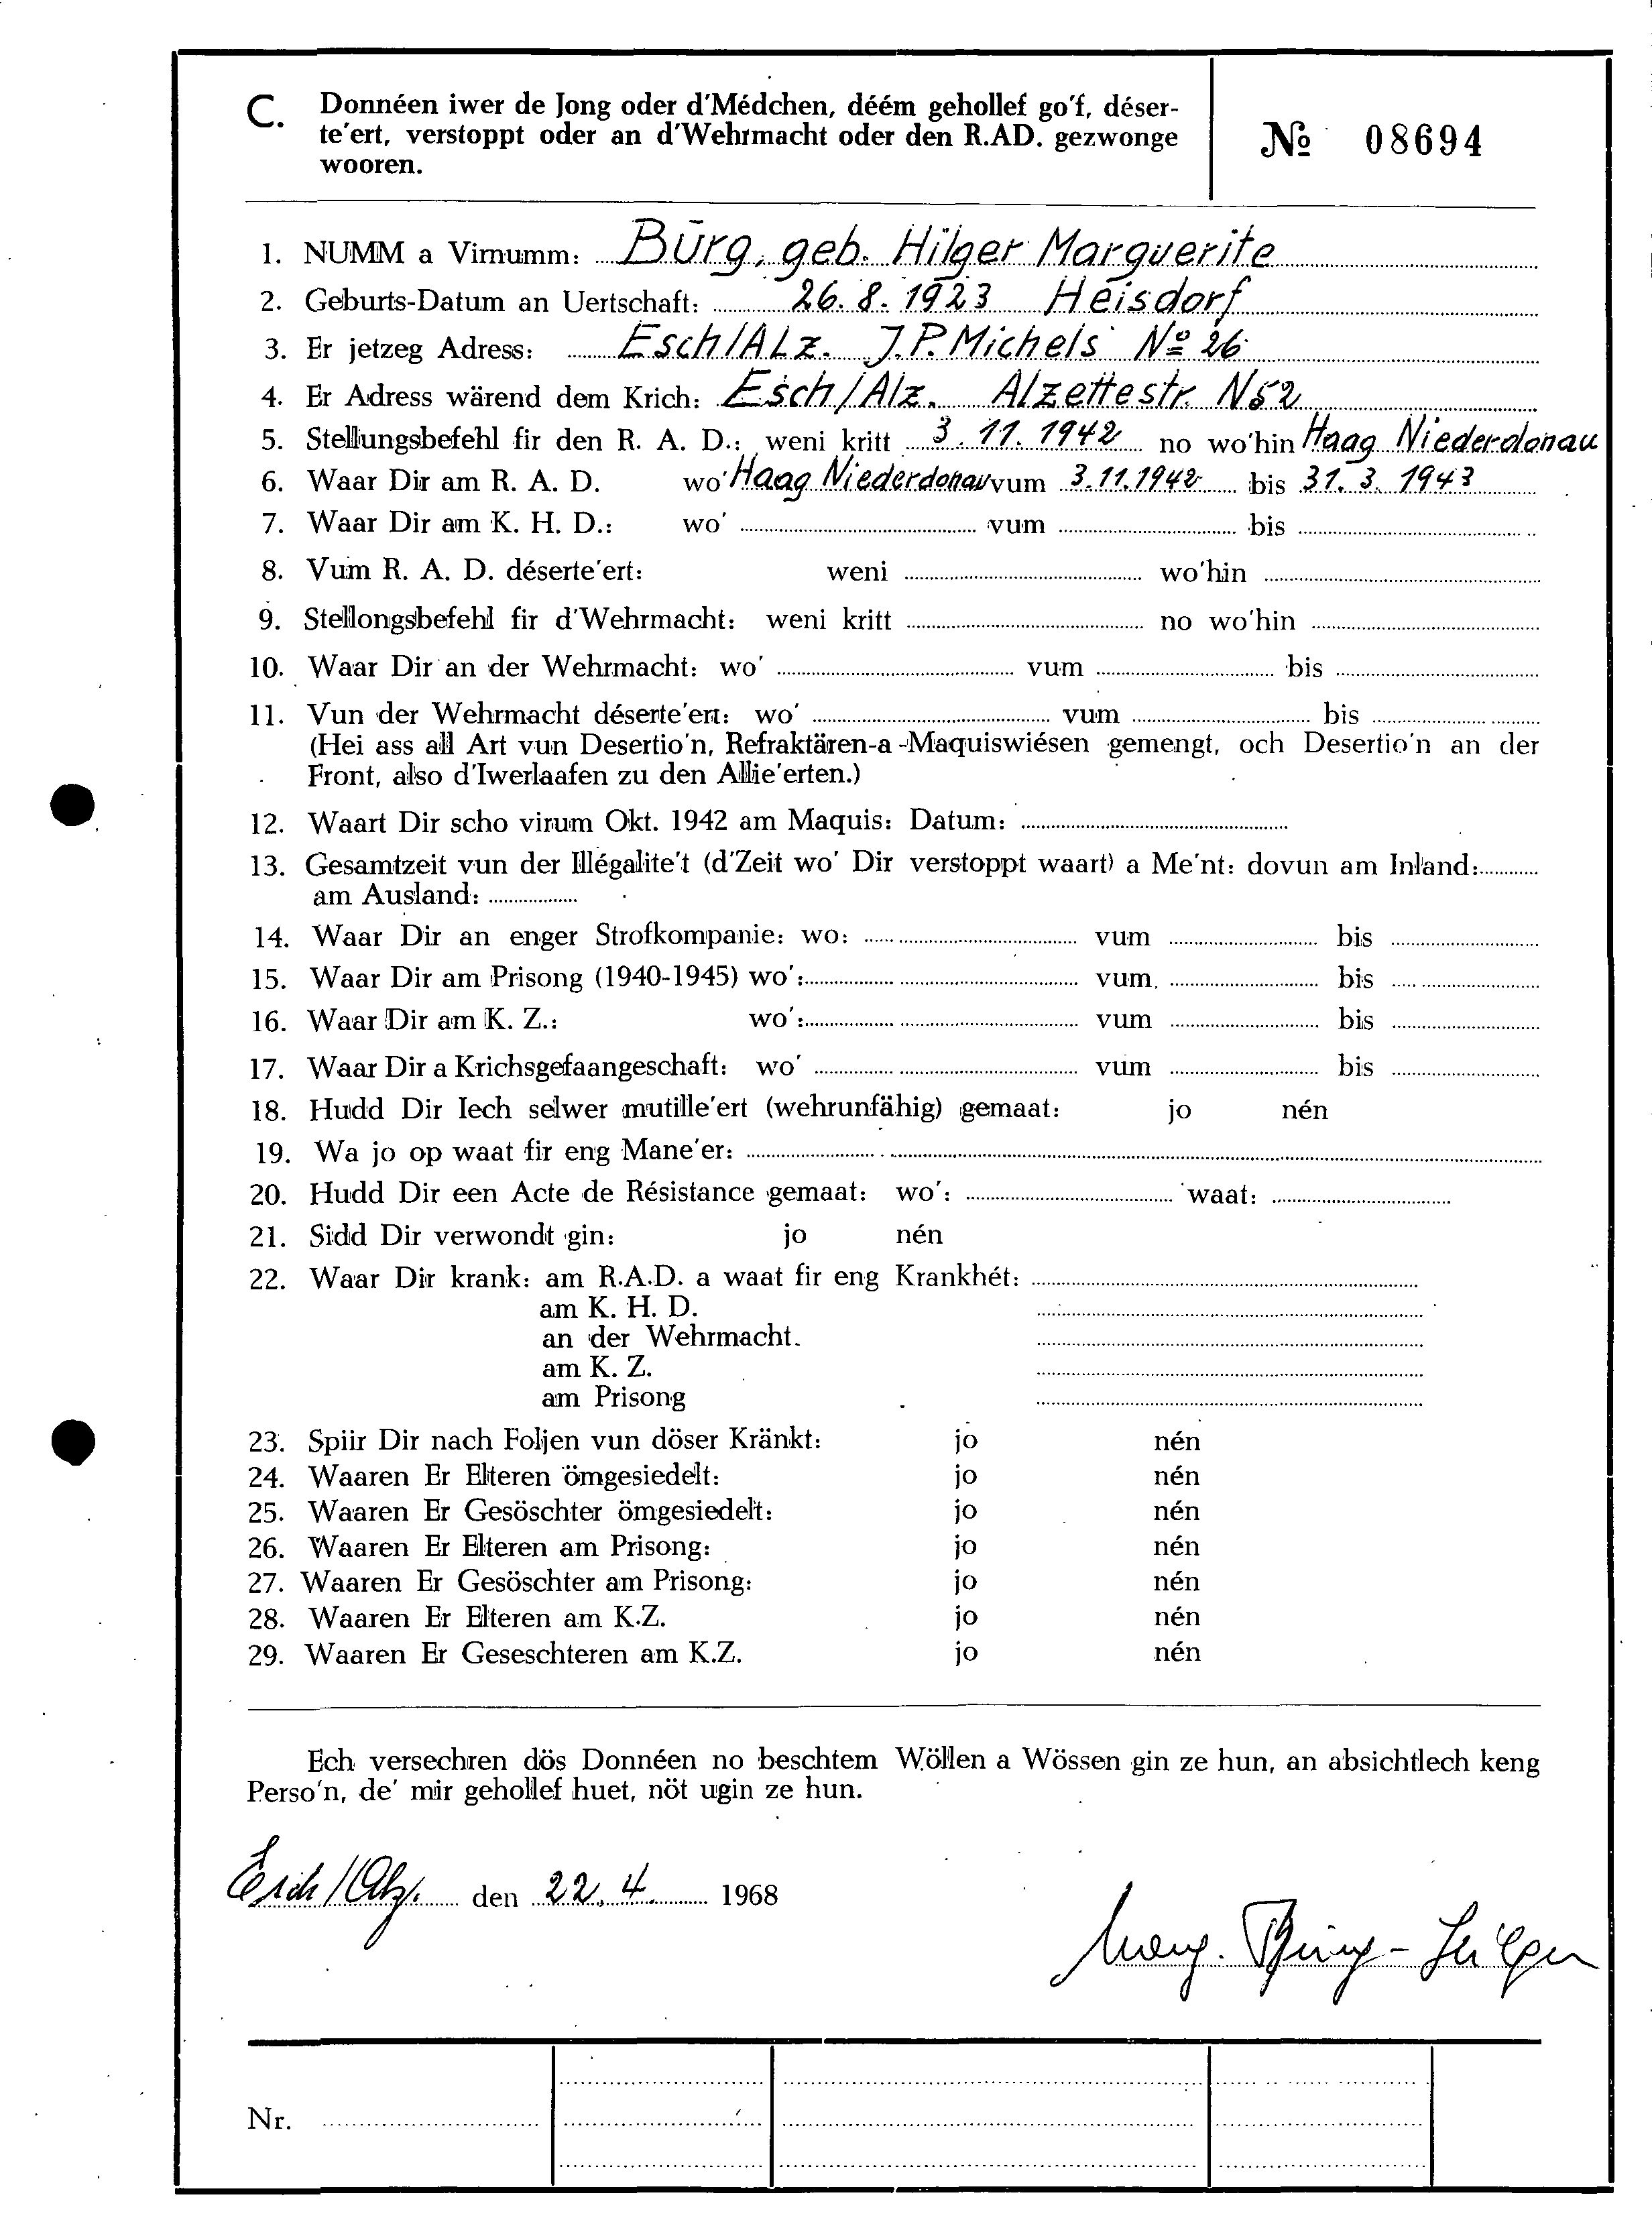 C. Donnéen iwer de Jong oder d'Médchen, déém gehollef go'f, déser-
te'ert, verstoppt oder an d'Wehrmacht oder den R.AD. gezwonge
wooren.
№ 08694
1. NUMM a Virnumm: Bürg, geb. Hilger Marguerite
2. Geburts-Datum an Uertschaft: 26. 8. 1923 Heisdorf
3. Er jetzeg Adress: Esch/Alz. J.P. Michels № 26
4. Er Adress wärend dem Krich: Esch/Alz. Alzettestr. N52
5. Stellungsbefehl fir den R. A. D.: weni kritt 3. 11. 1942 no wo'hin Haag Niederdonau
6. Waar Dir am R. A. D. wo' Haag Niederdonau vum 3.11.1942 bis 31. 3. 1943
7. Waar Dir am K. H. D.: wo' vum bis
8. Vum R. A. D. déserte'ert: weni wo'hin
9. Stellongsbefehl fir d'Wehrmacht: weni kritt no wo'hin
10. Waar Dir an der Wehrmacht: wo' vum bis
11. Vun der Wehrmacht déserte'ert: wo' vum bis
(Hei ass all Art vun Desertio'n, Refraktären-a-Maquiswiésen gemengt, och Desertio'n an der
Front, also d'Iwerlaafen zu den Allie'erten.)
12. Waart Dir scho virum Okt. 1942 am Maquis: Datum:
13. Gesamtzeit vun der Illégalite't (d'Zeit wo' Dir verstoppt waart) a Me'nt: dovun am Inland:
am Ausland:
14. Waar Dir an enger Strofkompanie: wo: vum bis
15. Waar Dir am Prisong (1940-1945) wo': vum bis
16. Waar Dir am K. Z.: wo': vum bis
17. Waar Dir a Krichsgefaangeschaft: wo' vum bis
18. Hudd Dir Iech selwer mutille'ert (wehrunfähig) gemaat: jo nén
19. Wa jo op waat fir eng Mane'er:
20. Hudd Dir een Acte de Résistance gemaat: wo': waat:
21. Sidd Dir verwondt gin: jo nén
22. Waar Dir krank: am R.A.D. a waat fir eng Krankhét:
am K. H. D.
an der Wehrmacht.
am K. Z.
am Prisong
23. Spiir Dir nach Foljen vun döser Kränkt: jo nén
24. Waaren Er Elteren ömgesiedelt: jo nén
25. Waaren Er Gesöschter ömgesiedelt: jo nén
26. Waaren Er Elteren am Prisong: jo nén
27. Waaren Er Gesöschter am Prisong: jo nén
28. Waaren Er Elteren am K.Z. jo nén
29. Waaren Er Geseschteren am K.Z. jo nén
Ech versechren dös Donnéen no beschtem Wöllen a Wössen gin ze hun, an absichtlech keng
Perso'n, de' mir gehollef huet, nöt ugin ze hun.
Esch/Alz. den 22. 4. 1968
Marg. Bürg-Hilger
Nr.